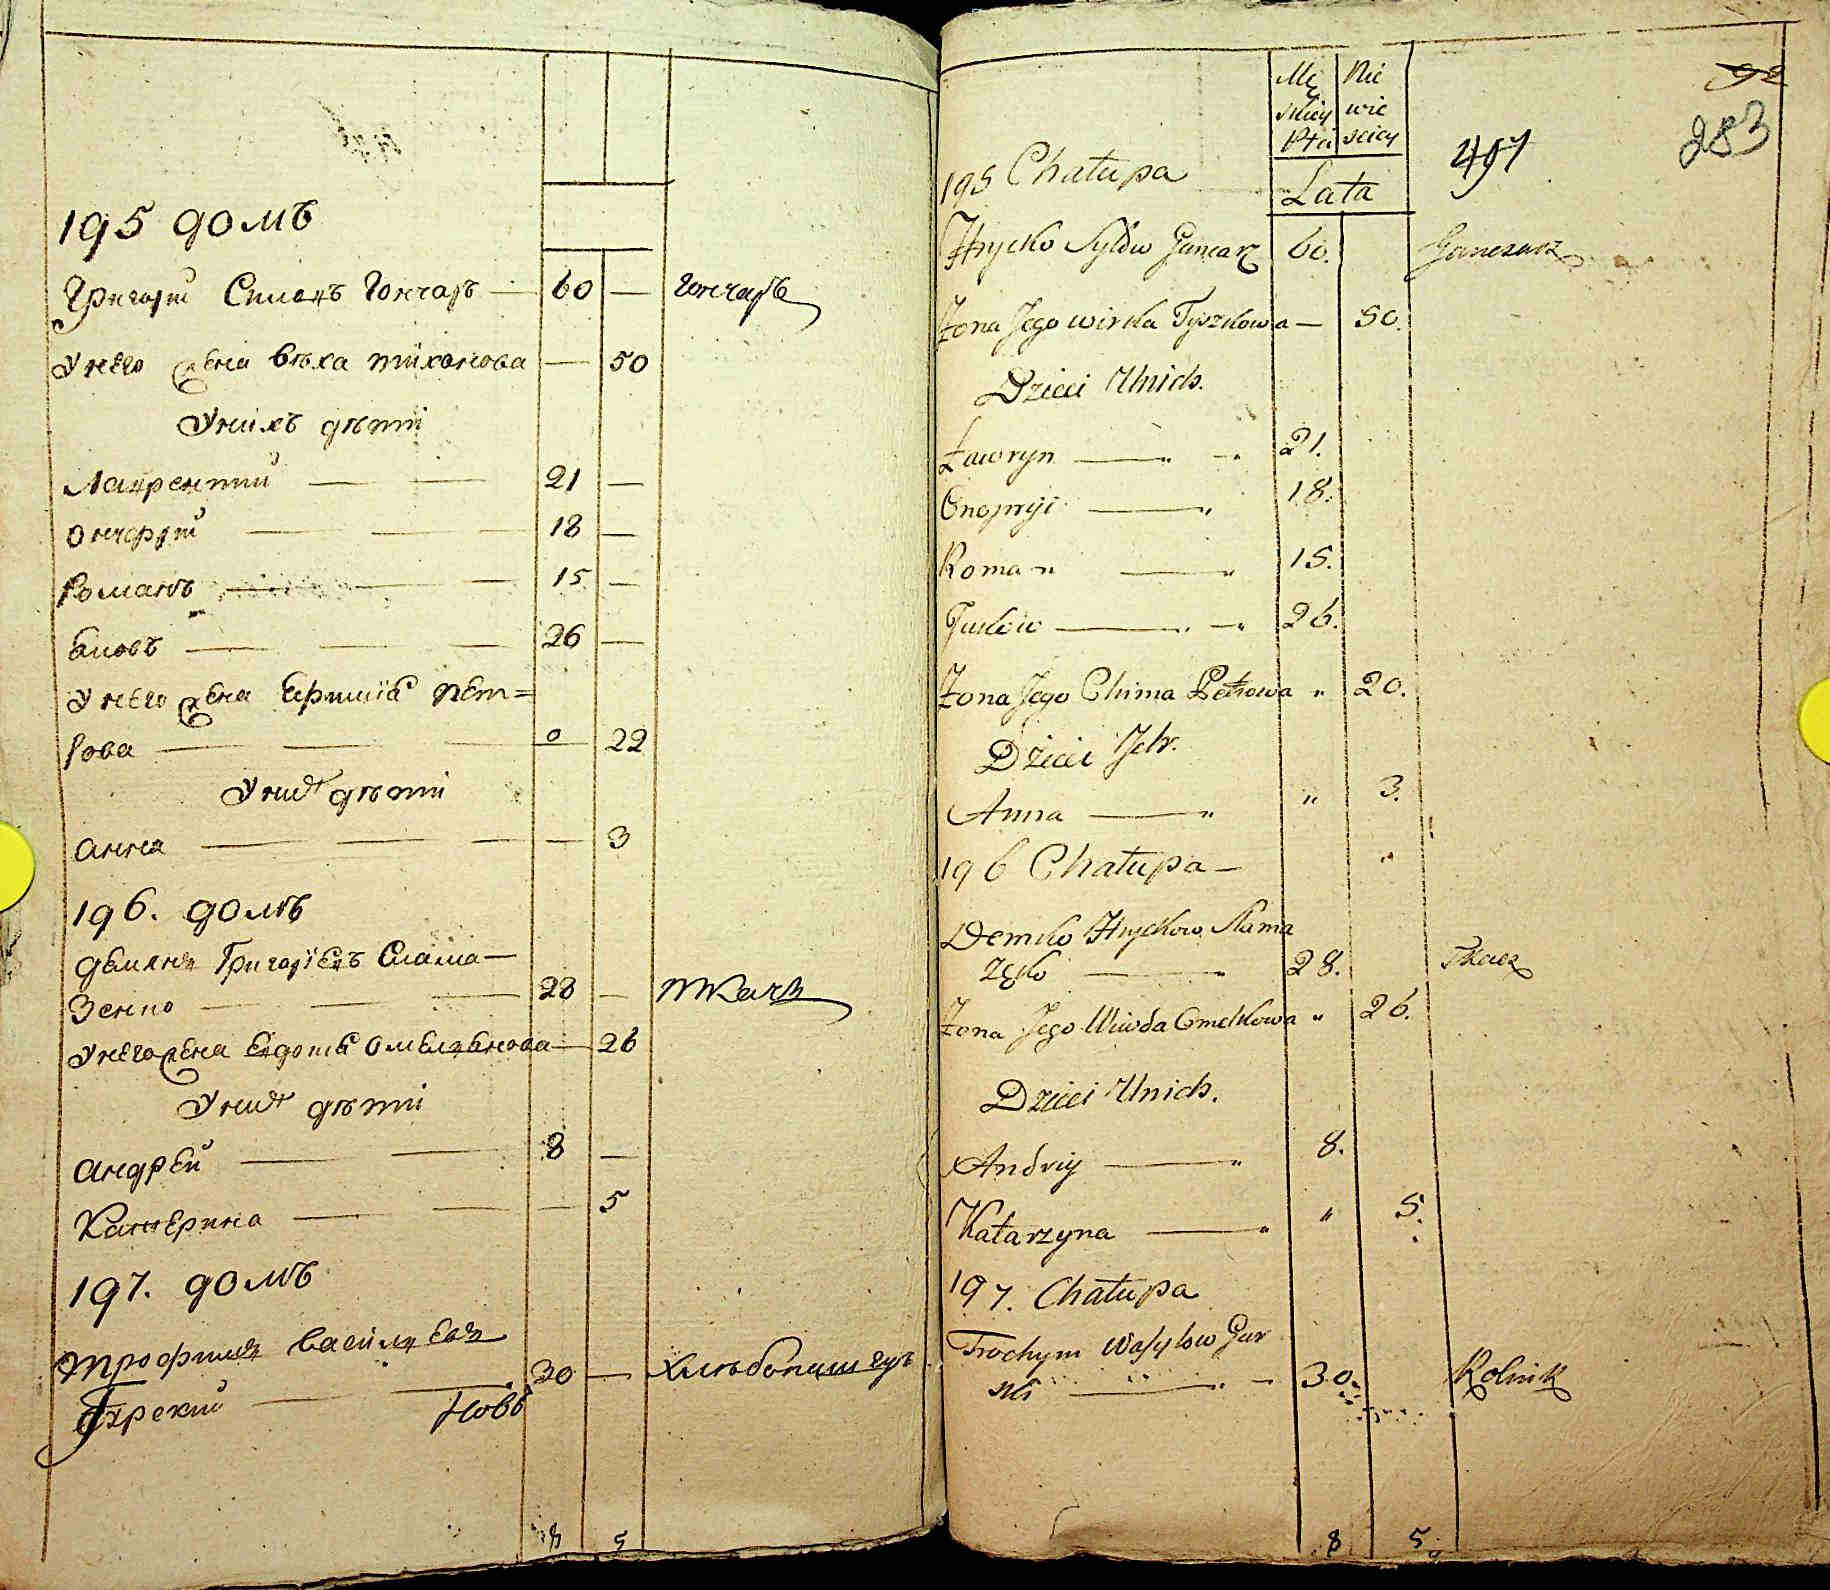 195 домъ
Григорій Силовъ Гончаръ — 60 — гончаръ
У него жена Вѣха Тихонова — 50
У нихъ дѣти
Лаврентий — — 21 —
Онуфрій — — — 18 —
Романъ — — — 15 —
— — — 26 —
У него жена Ефимія Пет=
рова — — — 22
У нихъ дѣти
Анна — — — — 3
196. домъ
Демянъ Григоріевъ Слама—
зенко — — — 28 — ткачъ
У него жена Евдотя Омельянова — 26
У нихъ дѣти
Андрей — — 8 —
Катерина — — — 5
197. домъ
Трофимъ Василіевъ
Гурский — — 30 — хлѣбопашецъ
8 5
Mę Nie
skiey wie
Płci sciey
92
283
491
195 Chałupa
Lata
Hrycko Syłow Gancarz 60. Gancarz
Żona Jego Wirka Tyszkowa — 50.
Dzieci Unich.
Ławryn — „ — „ 21.
Onopryi — „ 18.
Roman — „ 15.
— „ — „ 26.
Żona Jego Chima Petrowa „ 20.
Dzieci Ich.
Anna — „ „ 3.
196 Chałupa —
Demko Hryckow Słama
zęko — „ 28. Tkacz
Żona Jego Omelkowa „ 26.
Dzieci Unich.
Andriy — „ 8.
Katarzyna — „ „ 5.
197. Chałupa
Trochym Wasylow Gur
ski — „ — 30. Rolnik
8 5